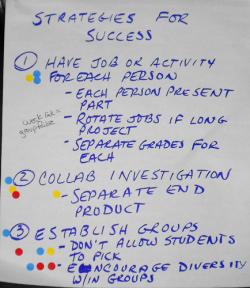 STRATEGIES FOR
SUCCESS
① HAVE JOB OR ACTIVITY
FOR EACH PERSON
- EACH PERSON PRESENT
PART
- ROTATE JOBS IF LONG
PROJECT
- SEPARATE GRADES FOR
EACH
② COLLAB INVESTIGATION
- SEPARATE END
PRODUCT
③ ESTABLISH GROUPS
- DON'T ALLOW STUDENTS
TO PICK
- ENCOURAGE DIVERSITY
W/IN GROUPS